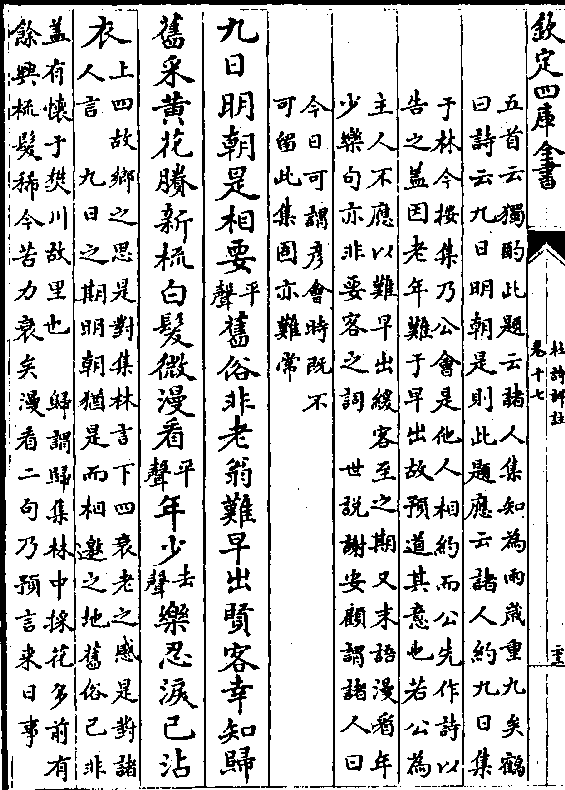 欽定四庫全書
杜詩詳註
卷十七
五首云獨酌此題云諸人集知為兩歲重九矣鶴
曰詩云九日明朝是則此題應云諸人約九日集
于林今按集乃公會是他人相約而公先作詩以
告之蓋因老年難于早出故預道其意也若公為
主人不應以難早出緩客至之期又末語漫看年
少樂句亦非要客之詞 世説謝安顧謂諸人曰
今日可謂彦會時既不
可留此集固亦難常
九日明朝是相要平聲舊俗非老翁難早出賢客幸知歸
舊采黄花賸新梳白髮微漫看平聲年少去聲樂忍淚已沾
衣
上四故鄉之思是對集林言下四衰老之感是對諸
人言 九日之期明朝猶是而相邀之地舊俗已非
盖有懷于樊川故里也 歸謂歸集林中採花多前有
餘興梳髮稀今苦力衰矣漫看二句乃預言來日事